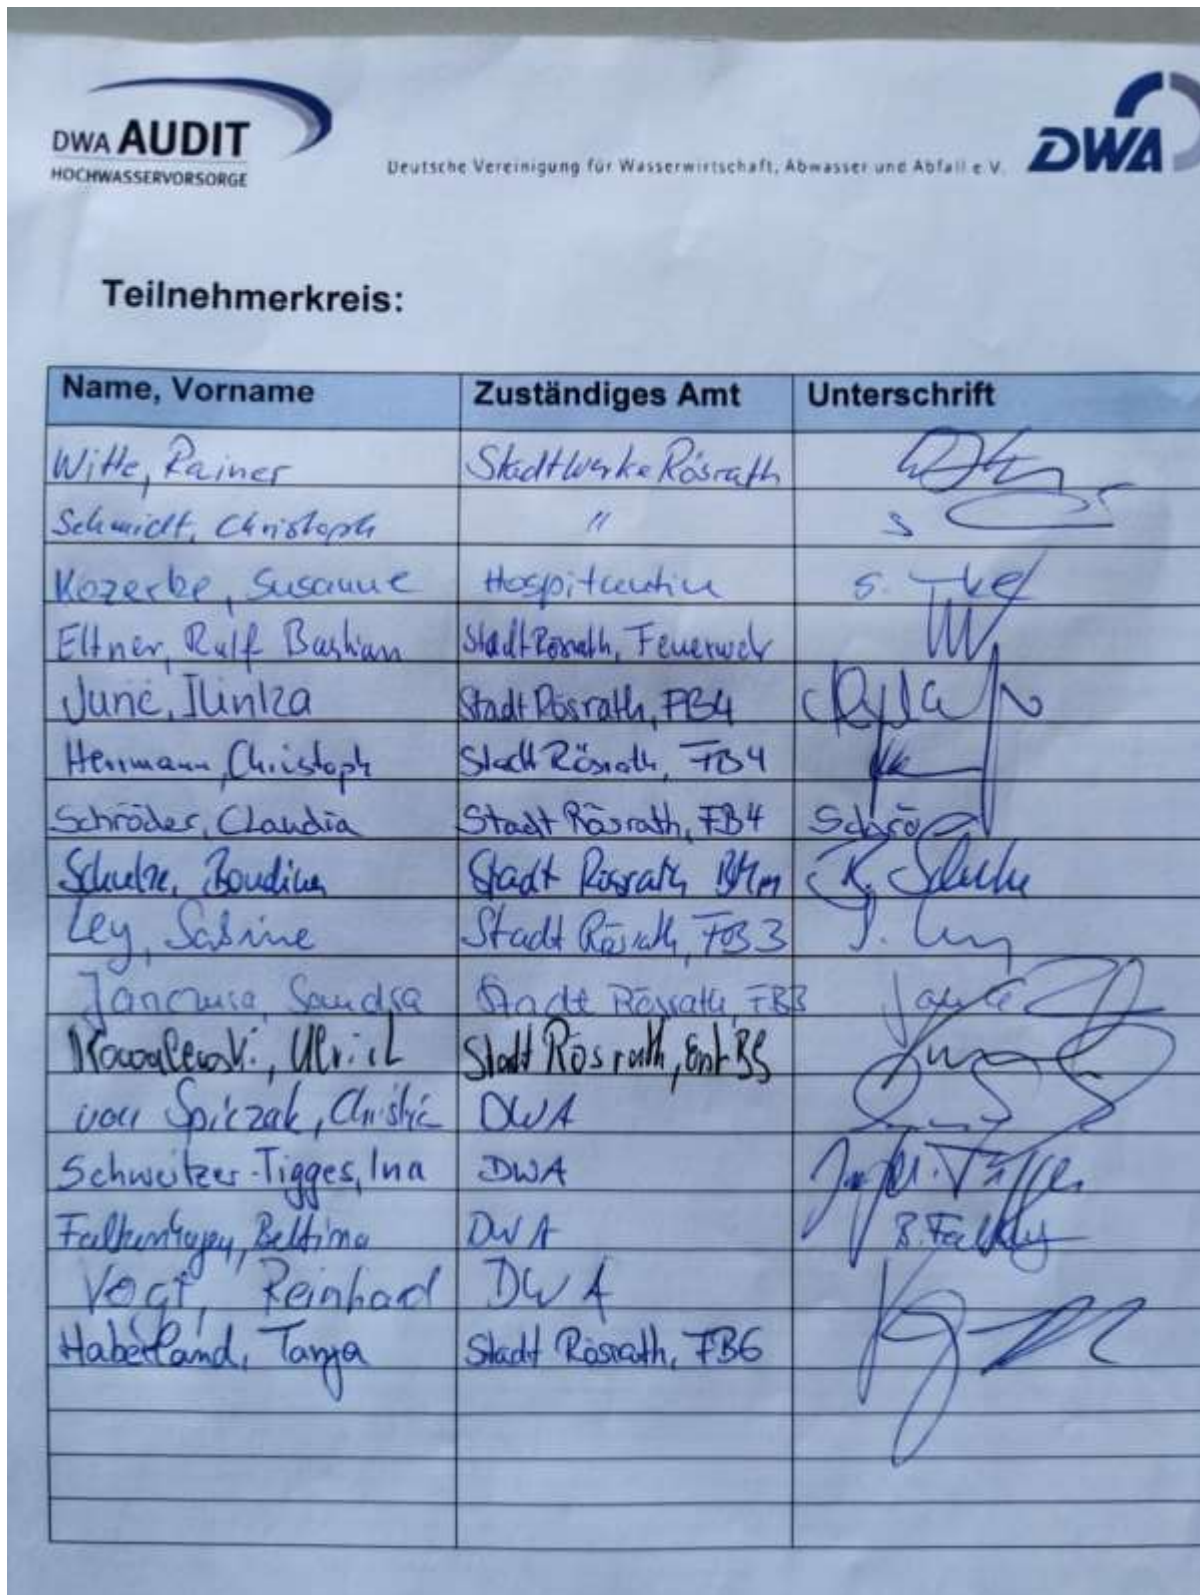 DWA AUDIT
HOCHWASSERVORSORGE
Deutsche Vereinigung für Wasserwirtschaft, Abwasser und Abfall e.V.
DWA
Teilnehmerkreis:
Name, Vorname Zuständiges Amt Unterschrift
Witte, Rainer Stadtwerke Rösrath
Schmidt, Christoph "
Kozerke, Susanne Hospitantin S.
Eltner, Ralf Bastian Stadt Rösrath, Feuerwehr
Stadt Rösrath, FB4
Herrmann, Christoph Stadt Rösrath, FB4
Schröder, Claudia Stadt Rösrath, FB4 Schrö
Schulze, Stadt Rösrath
Ley, Sabine Stadt Rösrath, FB3 S. Ley
Sandra Stadt Rösrath, FB3
Kowalewski, Ulrich Stadt Rösrath,
von Spiczak, DWA
Schweitzer-Tigges, Ina DWA
Falkenhagen, Bettina DWA
Vogt, Reinhard DWA
Haberland, Tanja Stadt Rösrath, FB6